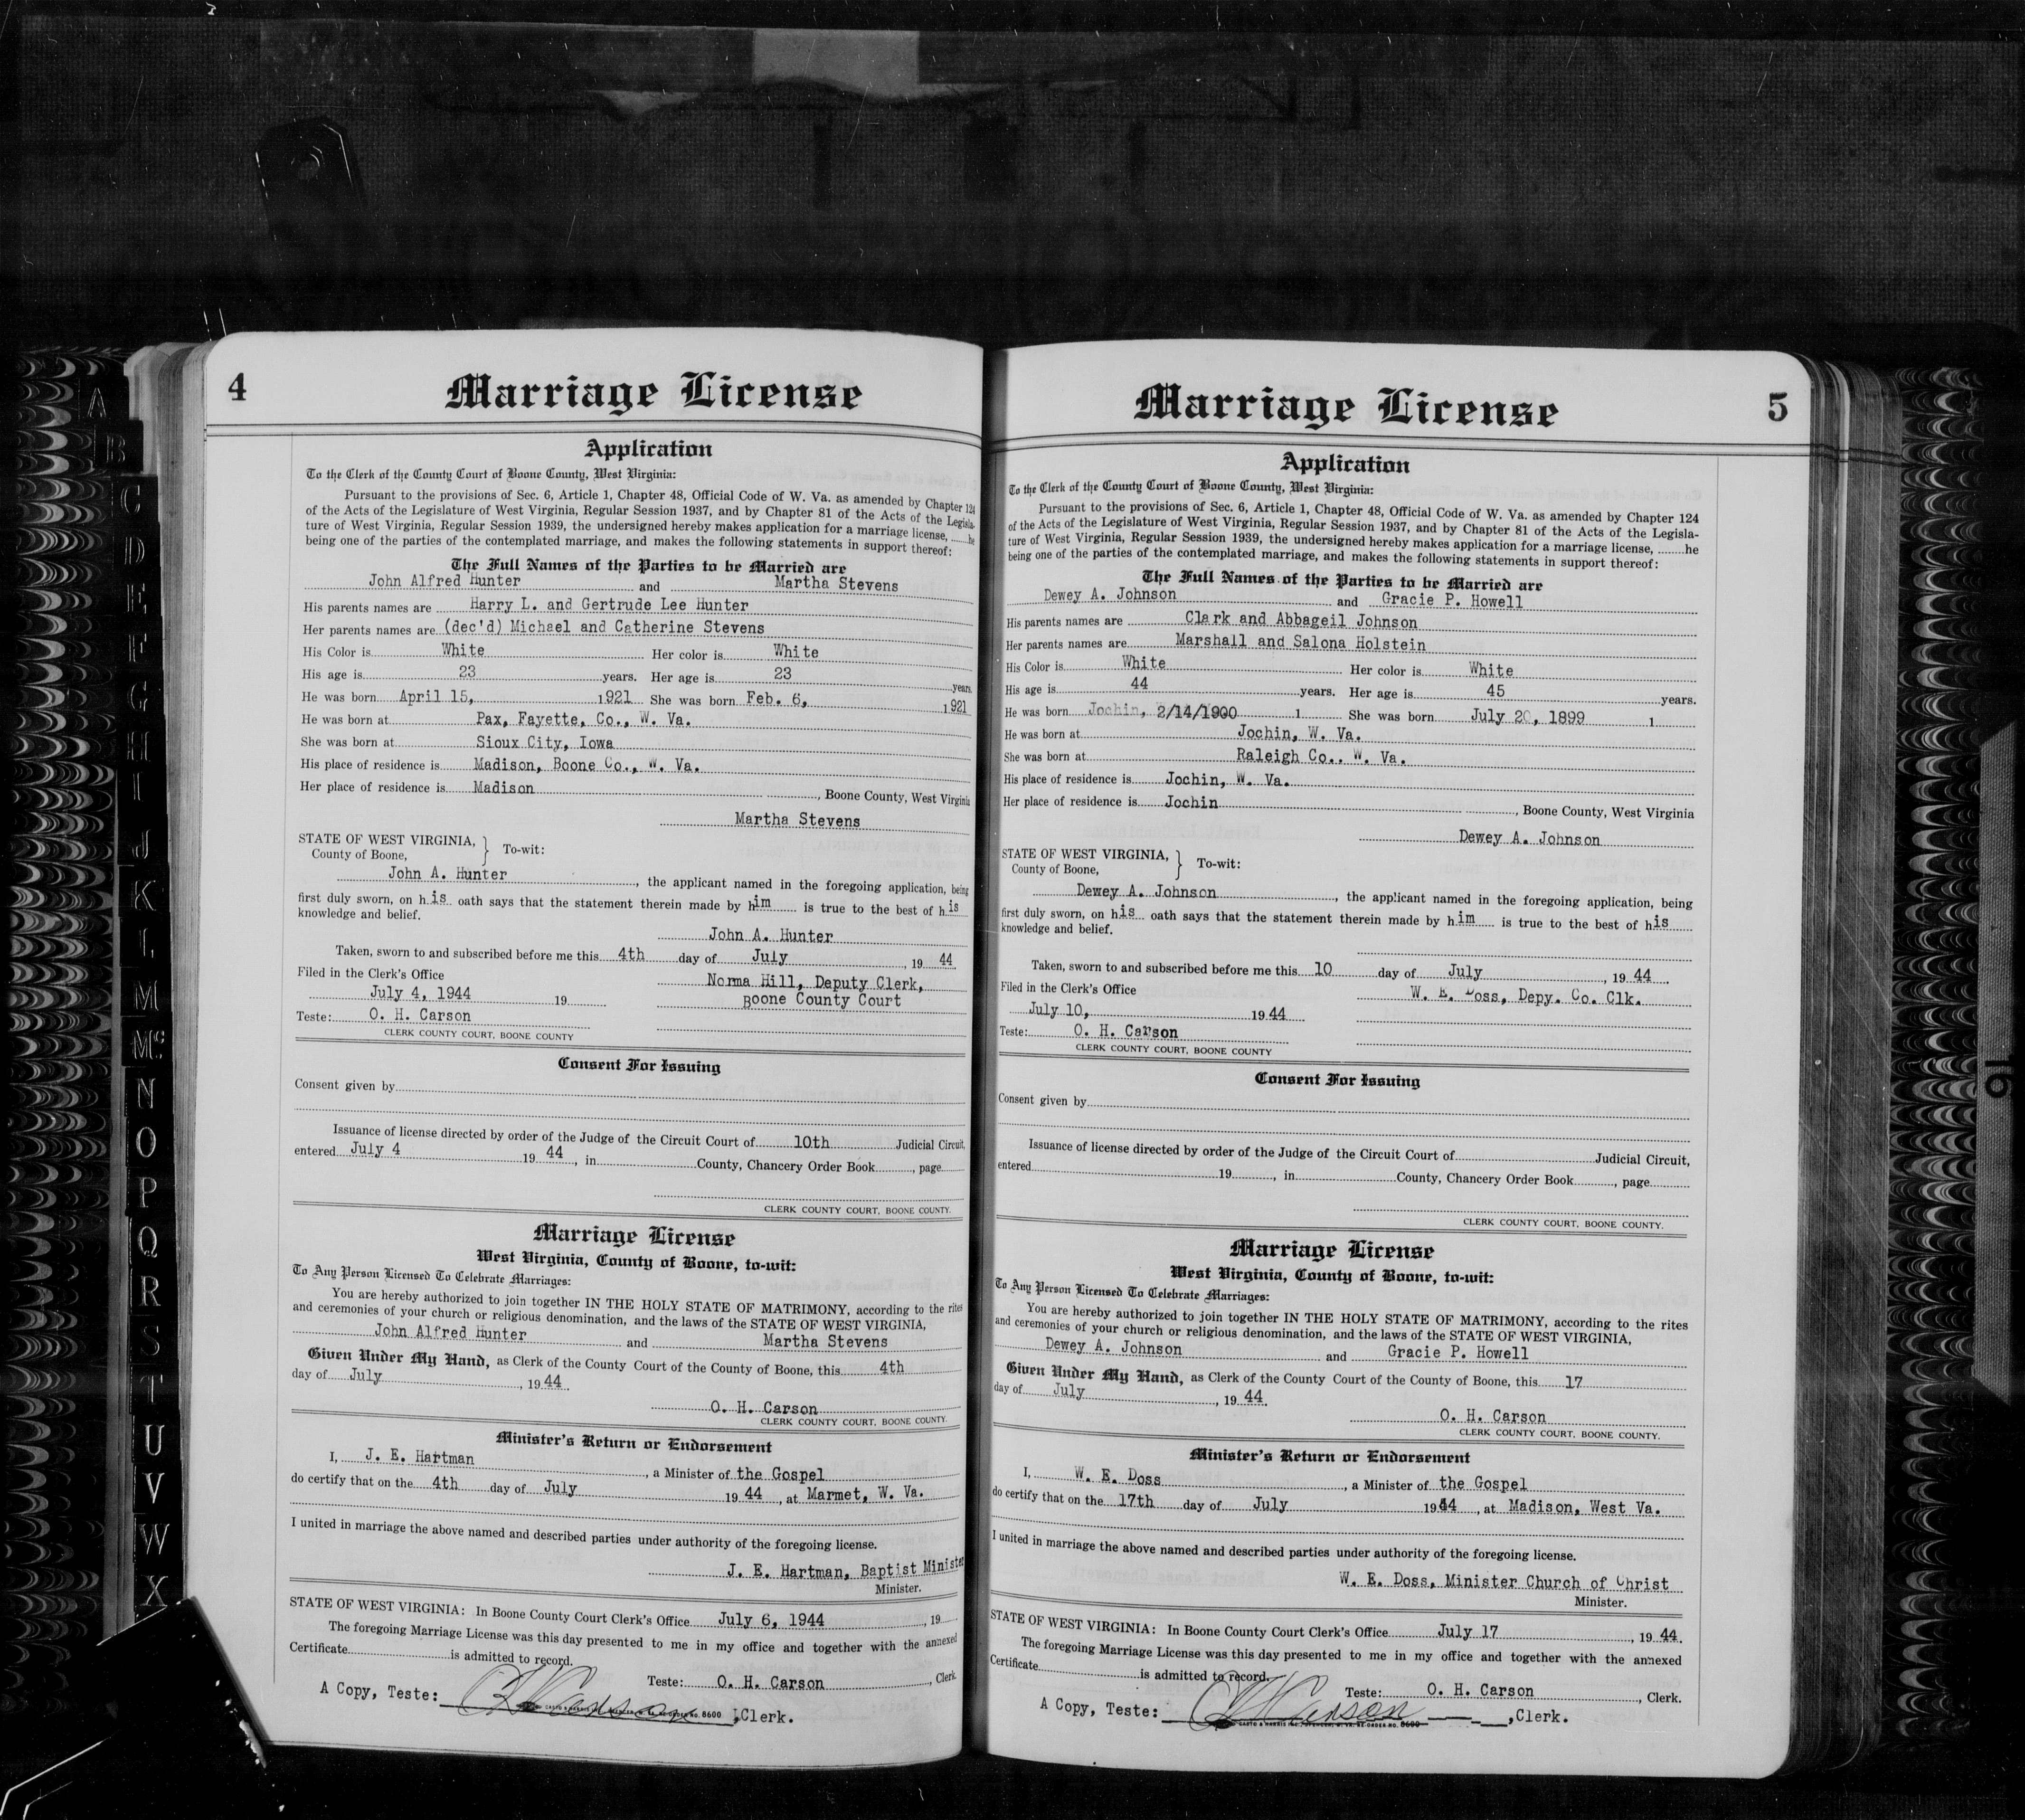 A
B
C
D
E
F
G
H
I
J
K
L
M
Mc
N
O
P
Q
R
S
T
U
V
W
X
4
Marriage License
Application
To the Clerk of the County Court of Boone County, West Virginia:
Pursuant to the provisions of Sec. 6, Article 1, Chapter 48, Official Code of W. Va. as amended by Chapter 124
of the Acts of the Legislature of West Virginia, Regular Session 1937, and by Chapter 81 of the Acts of the Legisla-
ture of West Virginia, Regular Session 1939, the undersigned hereby makes application for a marriage license, ......he
being one of the parties of the contemplated marriage, and makes the following statements in support thereof:
The Full Names of the Parties to be Married are
John Alfred Hunter and Martha Stevens
His parents names are Harry L. and Gertrude Lee Hunter
Her parents names are (dec'd) Michael and Catherine Stevens
His Color is White Her color is White
His age is 23 years. Her age is 23 years.
He was born April 15, 1921 She was born Feb. 6, 1921
He was born at Pax, Fayette, Co., W. Va.
She was born at Sioux City, Iowa
His place of residence is Madison, Boone Co., W. Va.
Her place of residence is Madison, Boone County, West Virginia
Martha Stevens
STATE OF WEST VIRGINIA,
County of Boone, } To-wit:
John A. Hunter, the applicant named in the foregoing application, being
first duly sworn, on his oath says that the statement therein made by him is true to the best of his
knowledge and belief.
John A. Hunter
Taken, sworn to and subscribed before me this 4th day of July, 19 44
Filed in the Clerk's Office Norma Hill, Deputy Clerk,
July 4, 1944 19 Boone County Court
Teste: O. H. Carson
CLERK COUNTY COURT, BOONE COUNTY
Consent For Issuing
Consent given by
Issuance of license directed by order of the Judge of the Circuit Court of 10th Judicial Circuit,
entered July 4 19 44, in County, Chancery Order Book, page
CLERK COUNTY COURT, BOONE COUNTY.
Marriage License
West Virginia, County of Boone, to-wit:
To Any Person Licensed To Celebrate Marriages:
You are hereby authorized to join together IN THE HOLY STATE OF MATRIMONY, according to the rites
and ceremonies of your church or religious denomination, and the laws of the STATE OF WEST VIRGINIA,
John Alfred Hunter and Martha Stevens
Given Under My Hand, as Clerk of the County Court of the County of Boone, this 4th
day of July, 19 44.
O. H. Carson
CLERK COUNTY COURT, BOONE COUNTY.
Minister's Return or Endorsement
I, J. E. Hartman, a Minister of the Gospel
do certify that on the 4th day of July 19 44, at Marmet, W. Va.
I united in marriage the above named and described parties under authority of the foregoing license.
J. E. Hartman, Baptist Minister
Minister.
STATE OF WEST VIRGINIA: In Boone County Court Clerk's Office July 6, 1944, 19
The foregoing Marriage License was this day presented to me in my office and together with the annexed
Certificate is admitted to record.
Teste: O. H. Carson, Clerk.
A Copy, Teste: O H Carson, Clerk.
5
Marriage License
Application
To the Clerk of the County Court of Boone County, West Virginia:
Pursuant to the provisions of Sec. 6, Article 1, Chapter 48, Official Code of W. Va. as amended by Chapter 124
of the Acts of the Legislature of West Virginia, Regular Session 1937, and by Chapter 81 of the Acts of the Legisla-
ture of West Virginia, Regular Session 1939, the undersigned hereby makes application for a marriage license, ........he
being one of the parties of the contemplated marriage, and makes the following statements in support thereof:
The Full Names of the Parties to be Married are
Dewey A. Johnson and Gracie P. Howell
His parents names are Clark and Abbageil Johnson
Her parents names are Marshall and Salona Holstein
His Color is White Her color is White
His age is 44 years. Her age is 45 years.
He was born Jochin, 2/14/1900 1 She was born July 20, 1899 1
He was born at Jochin, W. Va.
She was born at Raleigh Co.. W. Va.
His place of residence is Jochin, W. Va.
Her place of residence is Jochin, Boone County, West Virginia
Dewey A. Johnson
STATE OF WEST VIRGINIA,
County of Boone, } To-wit:
Dewey A. Johnson, the applicant named in the foregoing application, being
first duly sworn, on his oath says that the statement therein made by him is true to the best of his
knowledge and belief.
Taken, sworn to and subscribed before me this 10 day of July, 19 44.
Filed in the Clerk's Office W. E. Doss, Depy. Co. Clk.
July 10, 19 44
Teste: O. H. Carson
CLERK COUNTY COURT, BOONE COUNTY
Consent For Issuing
Consent given by
Issuance of license directed by order of the Judge of the Circuit Court of Judicial Circuit,
entered 19, in County, Chancery Order Book, page
CLERK COUNTY COURT, BOONE COUNTY.
Marriage License
West Virginia, County of Boone, to-wit:
To Any Person Licensed To Celebrate Marriages:
You are hereby authorized to join together IN THE HOLY STATE OF MATRIMONY, according to the rites
and ceremonies of your church or religious denomination, and the laws of the STATE OF WEST VIRGINIA,
Dewey A. Johnson and Gracie P. Howell
Given Under My Hand, as Clerk of the County Court of the County of Boone, this 17
day of July, 19 44.
O. H. Carson
CLERK COUNTY COURT, BOONE COUNTY.
Minister's Return or Endorsement
I, W. E. Doss, a Minister of the Gospel
do certify that on the 17th day of July 1944, at Madison, West Va.
I united in marriage the above named and described parties under authority of the foregoing license.
W. E. Doss, Minister Church of Christ
Minister.
STATE OF WEST VIRGINIA: In Boone County Court Clerk's Office July 17, 19 44.
The foregoing Marriage License was this day presented to me in my office and together with the annexed
Certificate is admitted to record.
Teste: O. H. Carson, Clerk.
A Copy, Teste: O H Carson, Clerk.